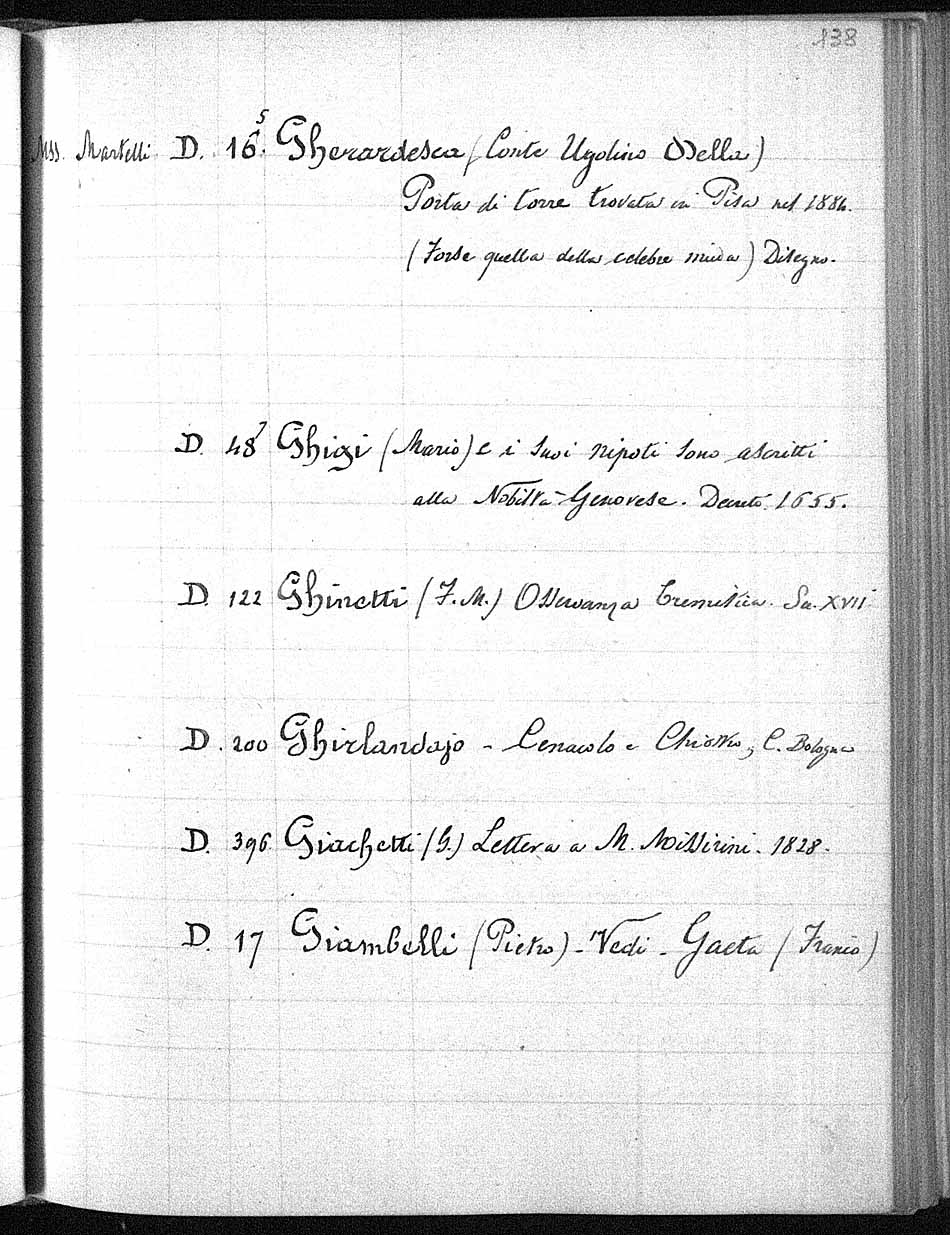 138
Mss. Martelli D. 16.5 Gherardesca (Conte Ugolino Della)
Porta di torre trovata in Pisa nel 1884.
(Forse quella della celebre muda) Disegno.
D. 48 7 Ghigi (Mario) e i suoi nipoti sono ascritti
alla Nobiltà Genovese. Decreto 1655.
D. 122 Ghinetti (F. M.) Osservanza Eremitica. Sec. XVII
D. 200 Ghirlandajo - Cenacolo e Chiostro, C. Bologna
D. 396 Giachetti (G.) Lettera a M. Missirini. 1828.
D. 17 Giambelli (Pietro) - Vedi - Gaeta (Franco)